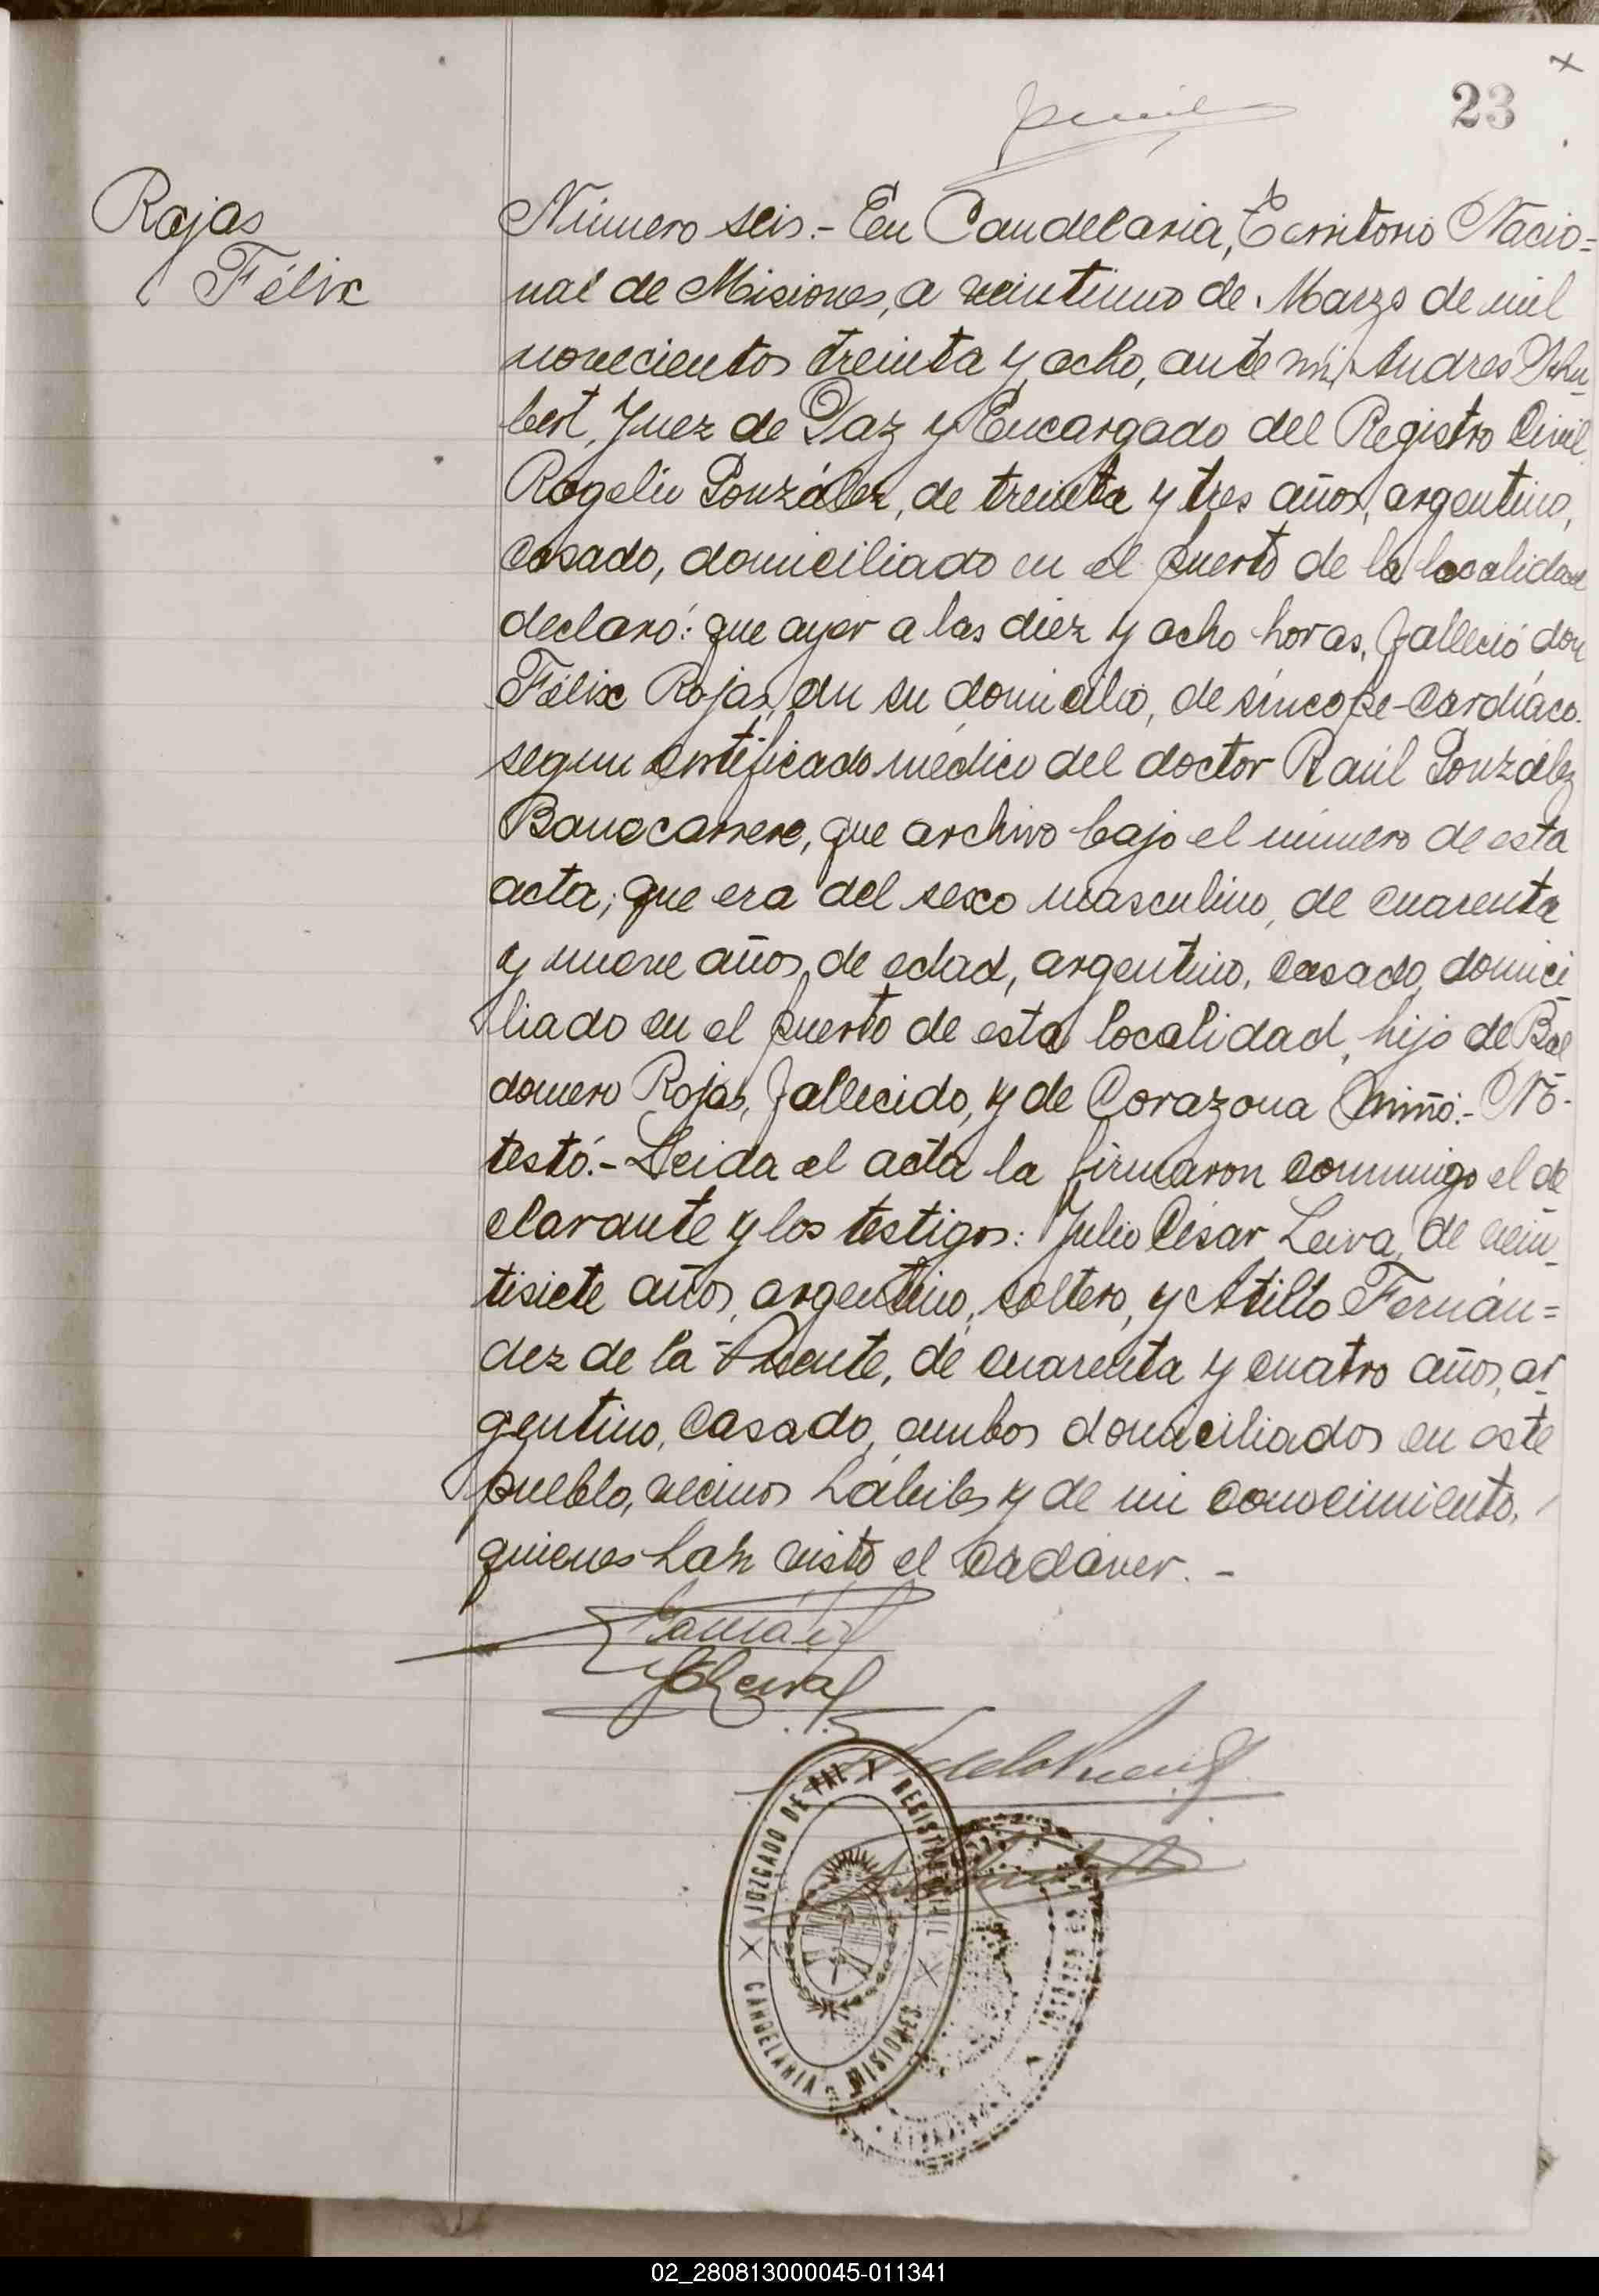 23
Rojas
Félix
Número seis.- En Candelaria, Territorio Nacio=
nal de Misiones, a veintiuno de Marzo de mil
novecientos treinta y ocho, ante mí, Andres Schu-
bert, Juez de Paz y Encargado del Registro Civil
Rogelio González, de treinta y tres años, argentino,
casado, domiciliado en el puerto de la localidad
declaró: que ayer a las diez y ocho horas, falleció don
Félix Rojas, en su domicilio, de síncope-cardíaco.
segun certificado médico del doctor Raúl González
que archivo bajo el número de esta
acta; que era del sexo masculino, de cuarenta
y nueve años, de edad, argentino, casado, domici-
liado en el puerto de esta localidad, hijo de Bal
domero Rojas, fallecido, y de Corazona Miñó.- No-
testó.- Leida el acta la firmaron conmigo el de
clarante y los testigos: Julio César Leiva, de vein-
tisiete años, argentino, soltero, y Atilio Fernán=
dez de la Puente, de cuarenta y cuatro años, ar-
gentino, casado, ambos domiciliados en este
pueblo, vecinos hábiles y de mi conocimiento,
quienes han visto el cadáver. -
JCLeiva
delaPuente
JUZGADO DE PAZ X REGISTRO CIVIL X
CANDELARIA - MISIONES
02_280813000045-011341